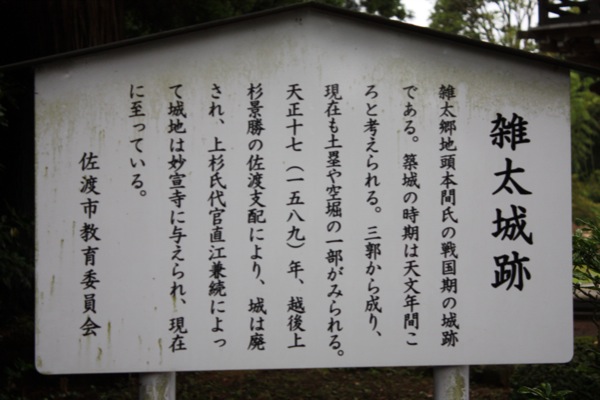 雑太城跡
雑太郷地頭本間氏の戦国期の城跡
である。築城の時期は天文年間こ
ろと考えられる。三郭から成り、
現在も土塁や空堀の一部がみられる。
天正十七（一五八九）年、越後上
杉景勝の佐渡支配により、城は廃
され、上杉氏代官直江兼続によっ
て城地は妙宣寺に与えられ、現在
に至っている。
佐渡市教育委員会